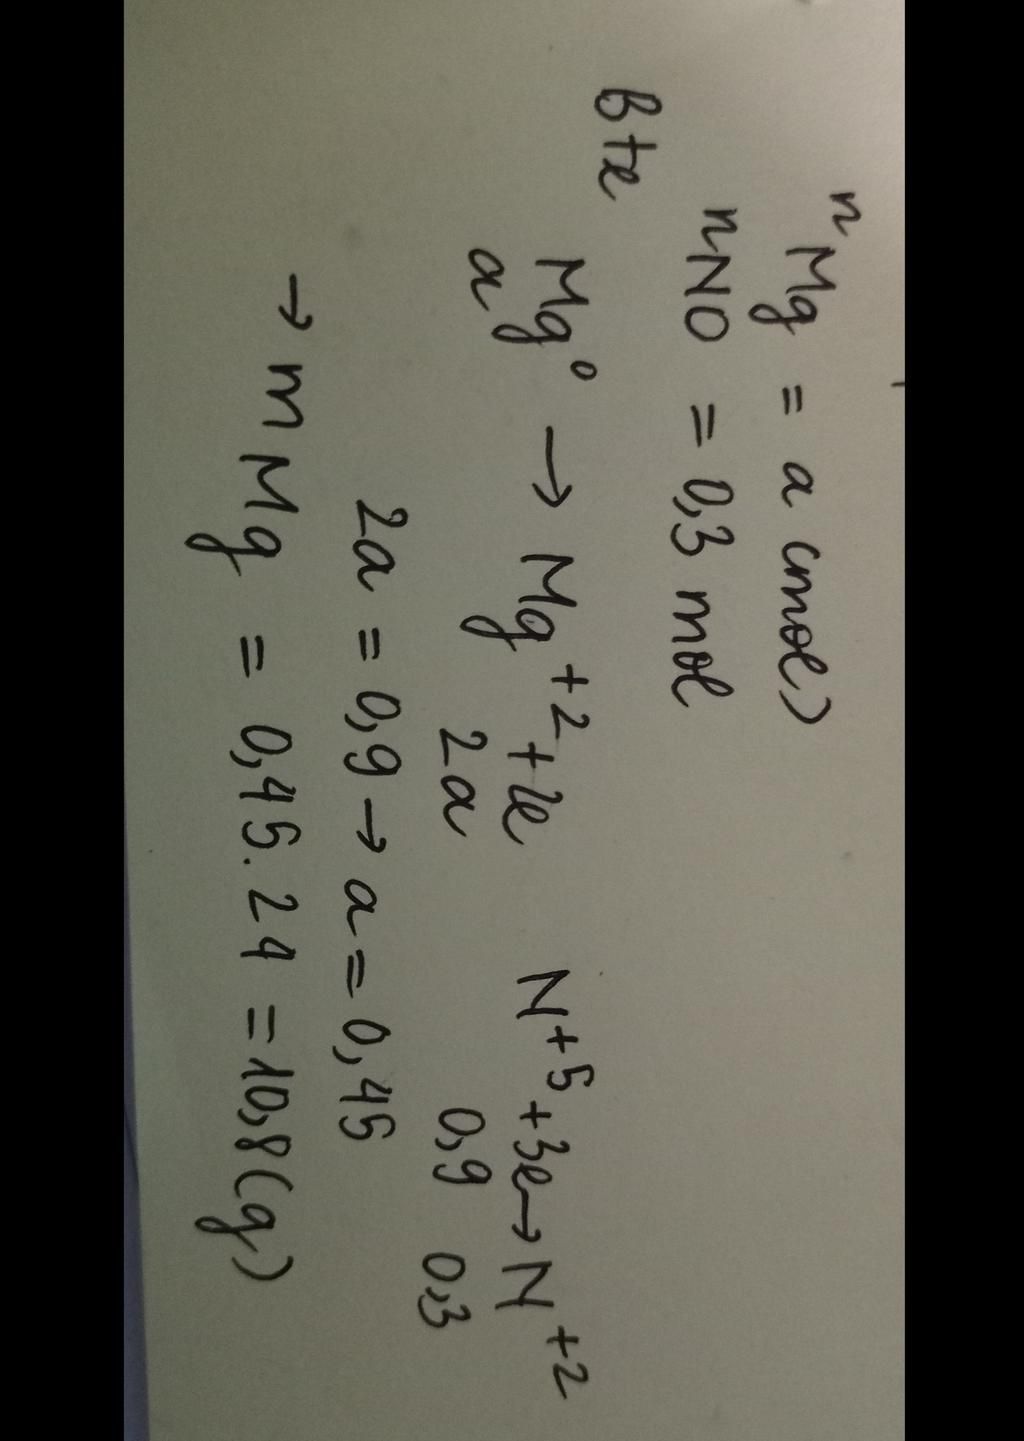 nMg = a (mol)
nNO = 0,3 mol
Bte
Mg⁰ → Mg⁺² + 2e N⁺⁵ + 3e → N⁺²
a 2a 0,9 0,3
2a = 0,9 → a = 0,45
→ mMg = 0,45.24 = 10,8(g)